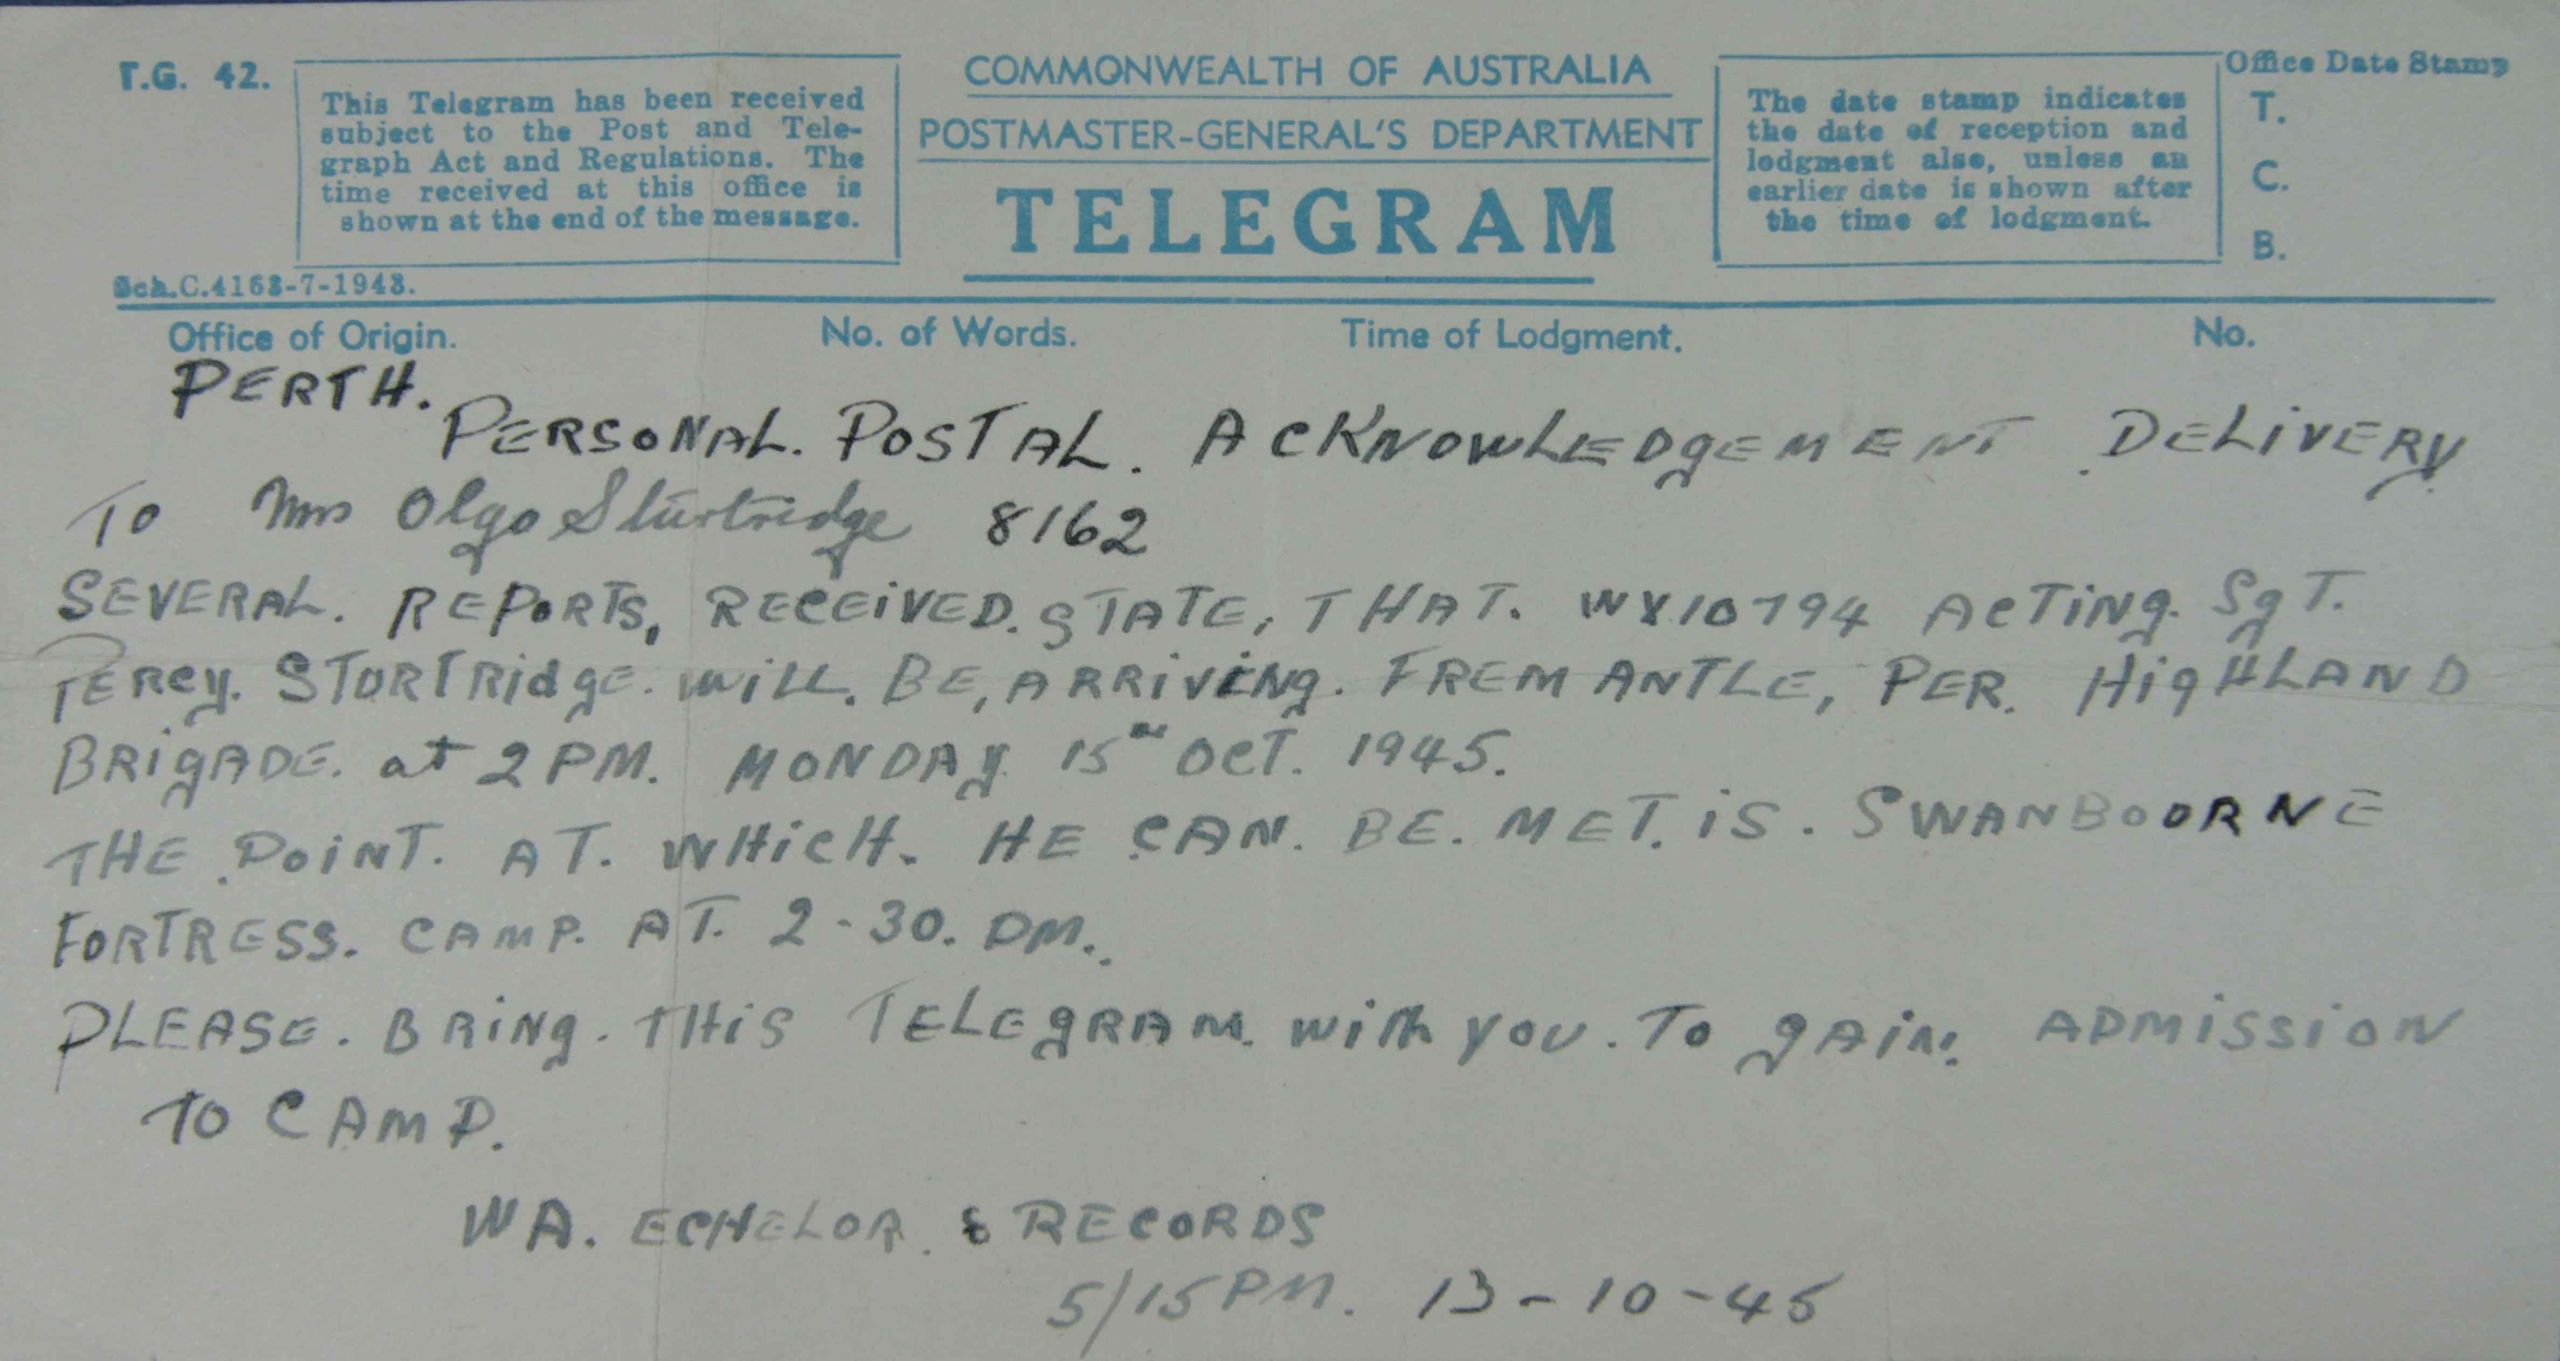 T.G. 42.
This Telegram has been received
subject to the Post and Tele-
graph Act and Regulations. The
time received at this office is
shown at the end of the message.
Sch.C.4163-7-1943.
COMMONWEALTH OF AUSTRALIA
POSTMASTER-GENERAL'S DEPARTMENT
TELEGRAM
The date stamp indicates
the date of reception and
lodgment also, unless an
earlier date is shown after
the time of lodgment.
Office Date Stamp
T.
C.
B.
Office of Origin. No. of Words. Time of Lodgment. No.
PERTH.
PERSONAL. POSTAL. ACKNOWLEDGEMENT DELIVERY
TO Mrs Olga Sturtridge 8162
SEVERAL. REPORTS, RECEIVED. STATE, THAT. WX10794 ACTING. SgT.
PERCY. STURTRIDGE. WILL. BE, ARRIVING. FREMANTLE, PER. HIGHLAND
BRIGADE. at 2 PM. MONDAY 15th OCT. 1945.
THE POINT. AT. WHICH. HE CAN. BE. MET. IS. SWANBOORNE
FORTRESS. CAMP. AT. 2-30. PM.
PLEASE. BRING. THIS TELEGRAM. with you. To gAIN. ADMISSION
TO CAMP.
WA. ECHELON. & RECORDS
5/15PM. 13-10-45